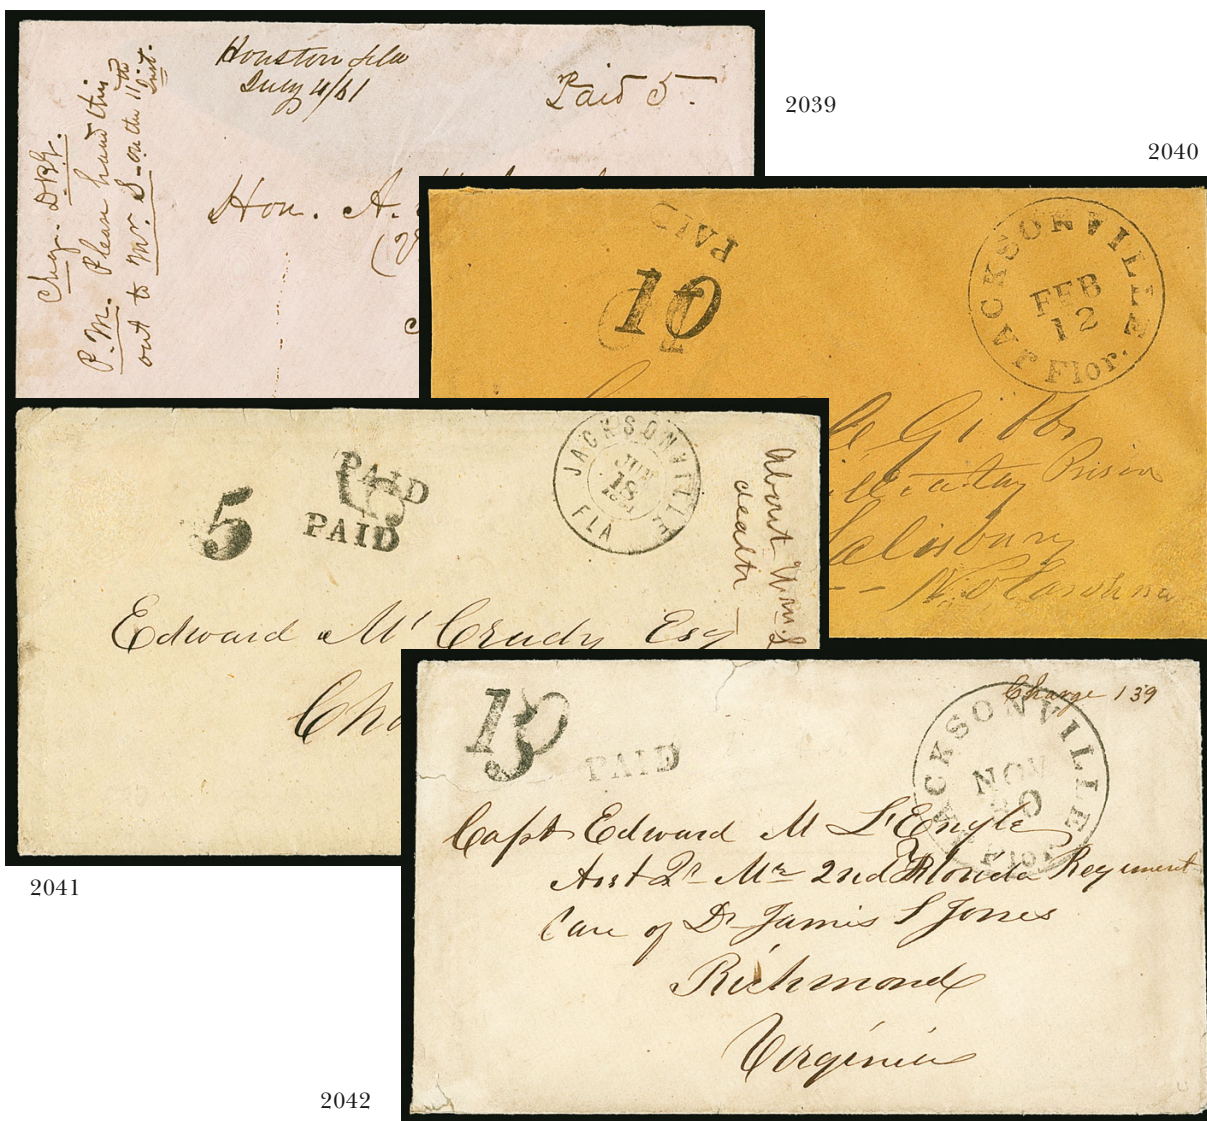 Houston Fla
July 4/61
Paid 5.
Chg. DKG.
P.M. Please hand this
out to Mr. S- on the 11th
inst.
Hon. A.
2039
2040
PAID
10
JACKSONVILLE
FEB
12
Flor.
Gibbs
Prison
Salisbury
N. Carolina
5
PAID
PAID
JACKSONVILLE
JUN
18
FLA
About Wm. S
death
Edward McCrady Esq
Cha
2041
10
5
PAID
JACKSONVILLE
NOV
Flor.
Charge 139
Capt Edward M L'Engle
Asst Qr Mr 2nd Florida Regiment
Care of Dr James S Jones
Richmond
Virginia
2042